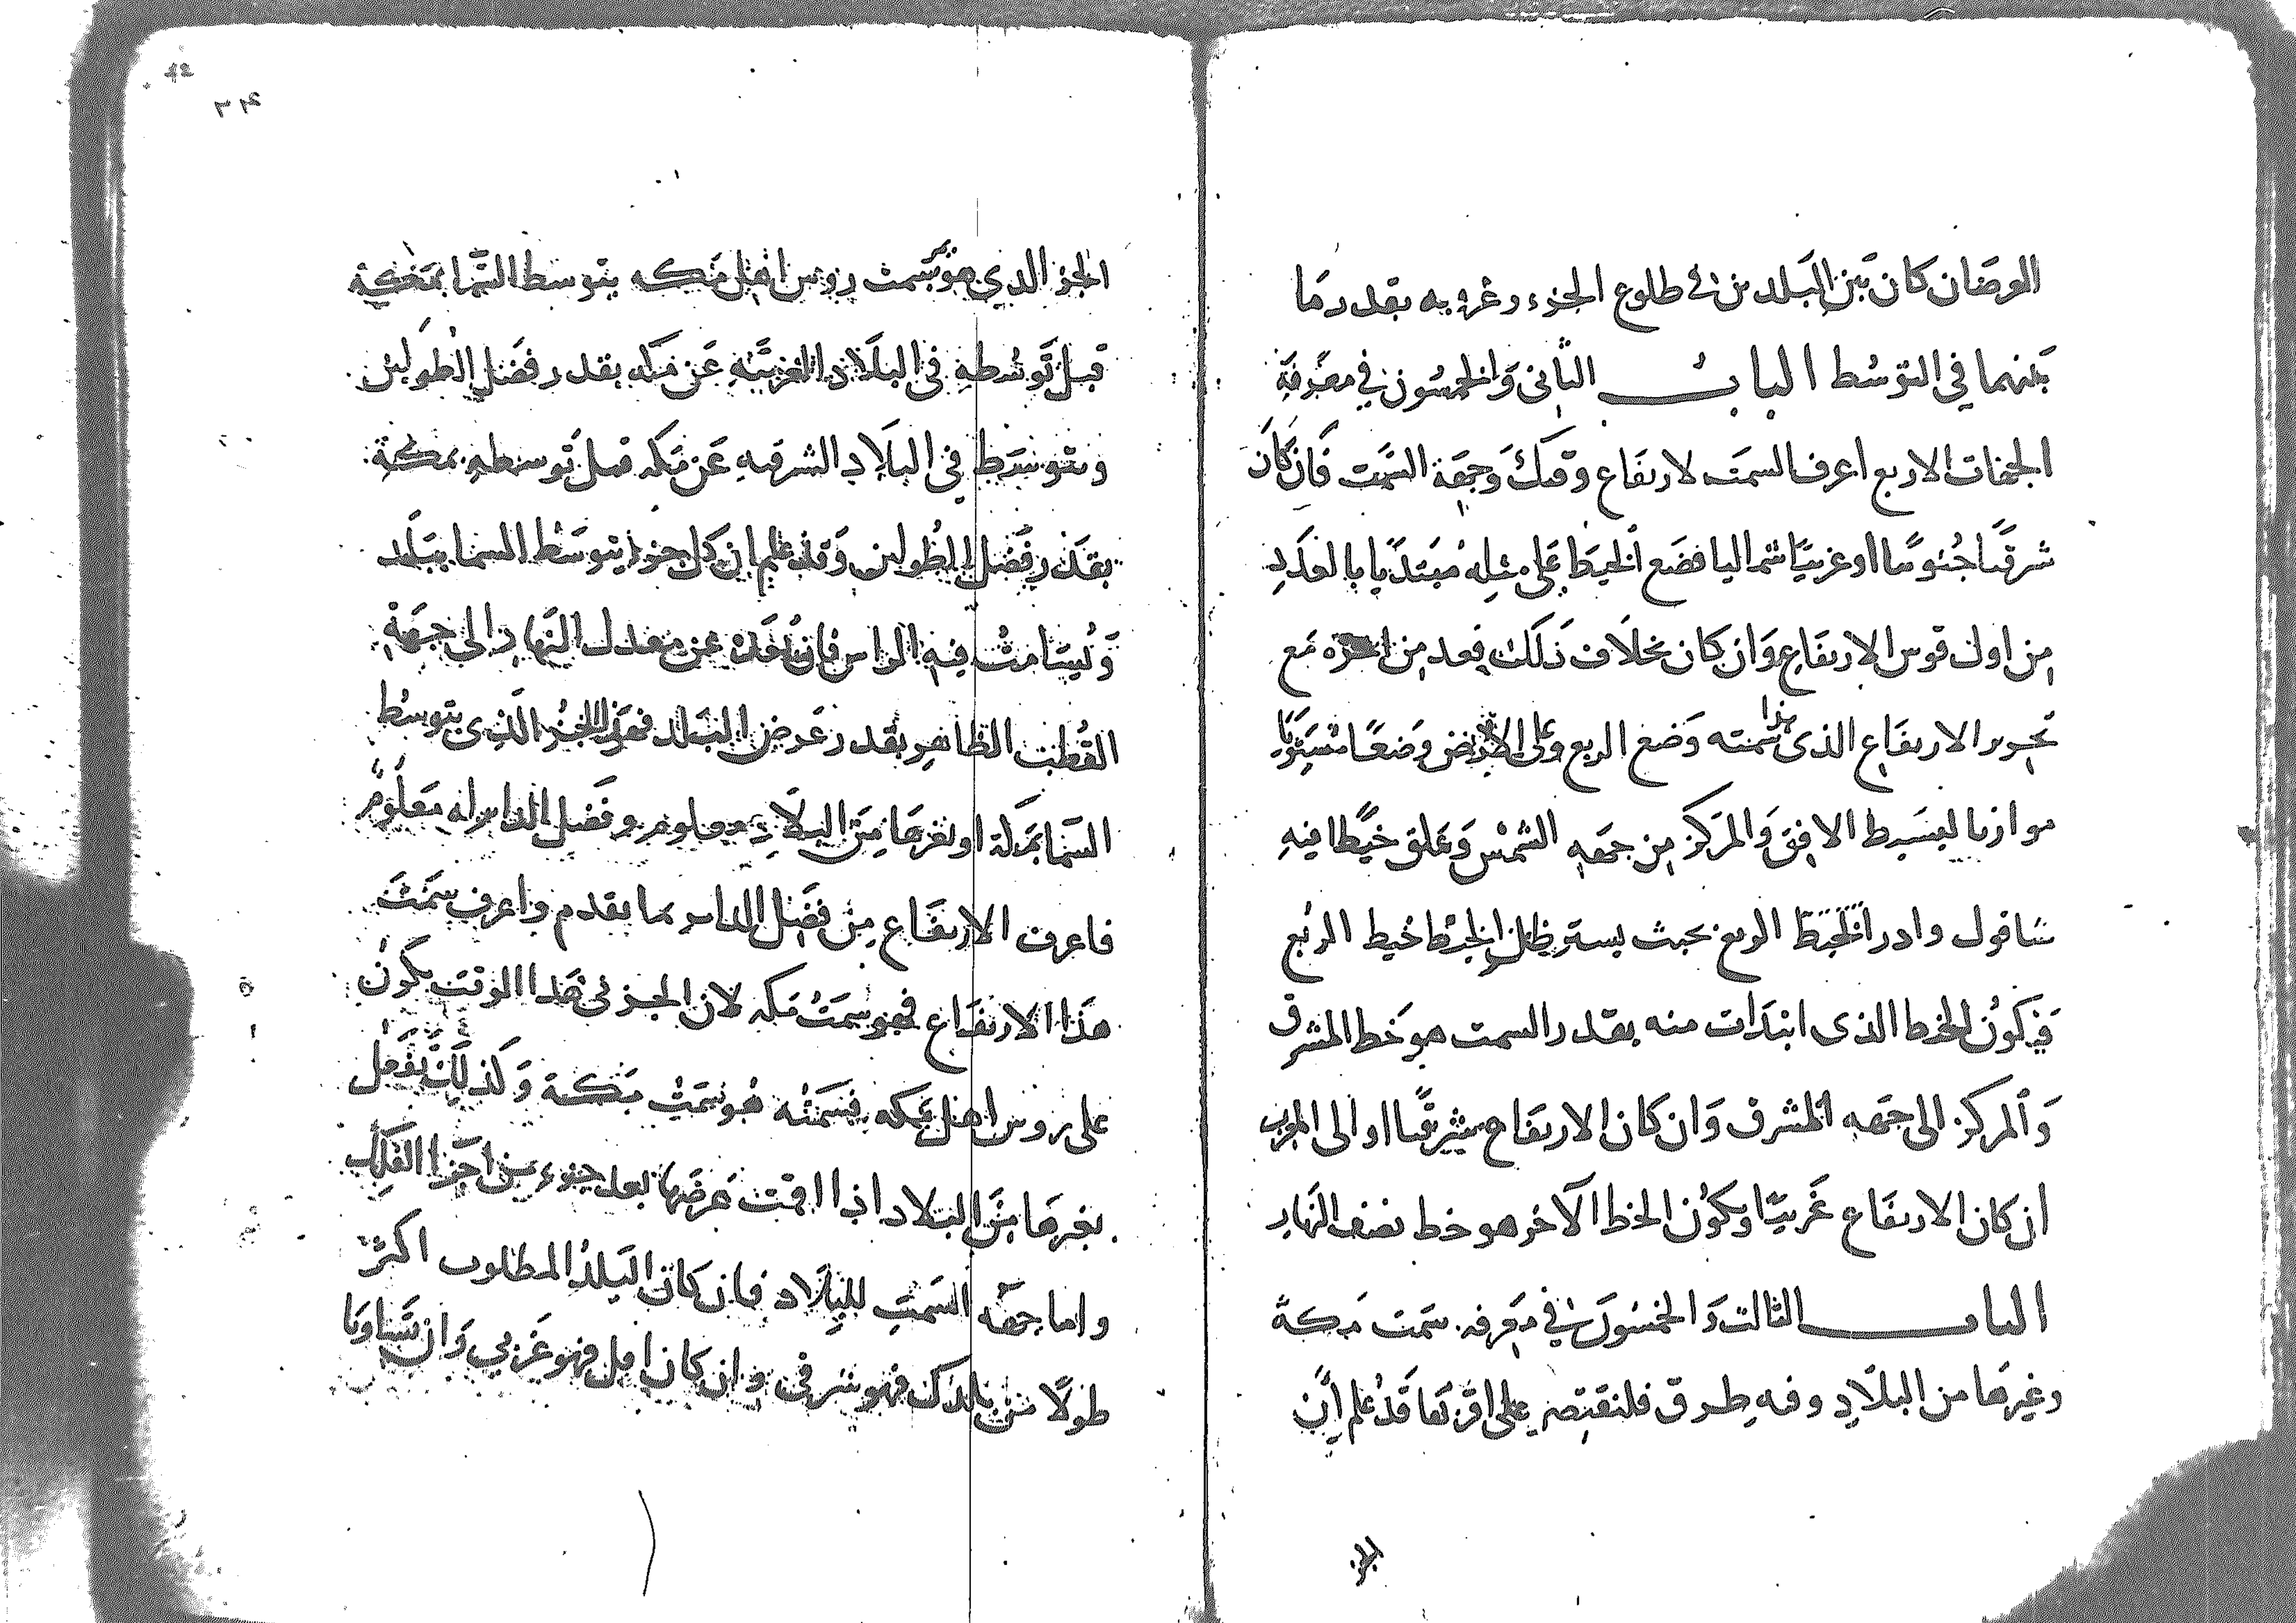 العرضان كان بين البلدين في طلوع الجزء وغروبه بقدر ما
بينهما في التوسط الباب الثاني والخمسون في معرفة
الجهات الاربع اعرف السمت لارتفاع وقتك وجهة السمت فان كان
شرقيا جنوبيا او غربيا شماليا فضع الخيط على مثله مبتديا بالعدد
من اول قوس الارتفاع وان كان بخلاف ذلك فعد من اخره مع
تحرير الارتفاع الذي هذا سمته وضع الربع على الارض وضعا مستويا
موازيا لبسيط الافق والمركز من جهه الشمس وعلق خيطا فيه
شاقول وادر الربع بحيث يستر ظل الخيط خيط الربع
فيكون الخط الذي ابتدات منه بقدر السمت هو خط المشرق
والمركز الى جهه المشرق وان كان الارتفاع شرقيا او الى المغرب
ان كان الارتفاع غربيا ويكون الخط الآخر هو خط نصف النهار
الباب الثالث والخمسون في معرفه سمت مكة
وغيرها من البلاد وفيه طرق فلنقتصر على اقربها قد علم ان
الجز
٣٤
42
الجزو الدي هو بسمت روس اهل مكه يتوسط السما بمكة
قبل توسطه في البلاد الغربيه عن مكه بقدر فضل الطولين
ويتوسط في البلاد الشرقيه عن مكه قبل توسطه بمكة
بقدر فضل الطولين وقد علم ان كل جزو يتوسط السما ببلد
ويسامت فيه الراس فان بعده عن معدل النهار الى جهة
القطب الظاهر بقدر عرض البلد فعلى الجزو الذي يتوسط
السما بمكة او بغيرها من البلاد معلوم وفضل الداير له معلوم
فاعرف الارتفاع من فضل الداير بما تقدم واعرف سمت
هذا الارتفاع فهو سمت مكه لان الجزو في هدا الوقت يكون
على روس اهل مكه فسمته هو سمت مكة وكذلك تفعل
بغيرها من البلاد اذا اقمت عرضها بعد جزء من اجزا الفلك
واما جهة السمت للبلاد فان كان البلد المطلوب اكثر
طولا من بلدك فهو شرقي وان كان اقل فهو غربي وان تساويا